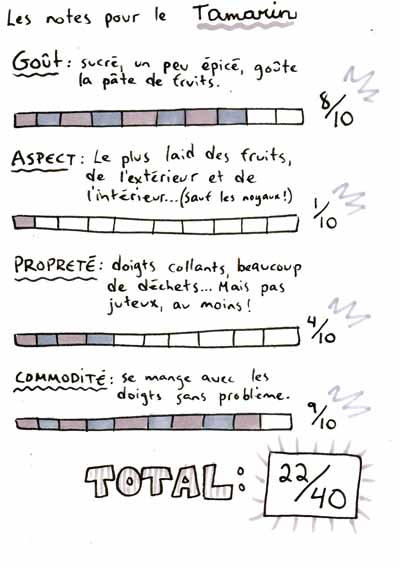 Les notes pour le Tamarin
Goût : sucré, un peu épicé, goûte
la pâte de fruits.
8/10
ASPECT : Le plus laid des fruits,
de l'extérieur et de
l'intérieur...(sauf les noyaux!)
1/10
PROPRETÉ : doigts collants, beaucoup
de déchets... Mais pas
juteux, au moins!
4/10
COMMODITÉ : se mange avec les
doigts sans problème.
9/10
TOTAL:
22/40